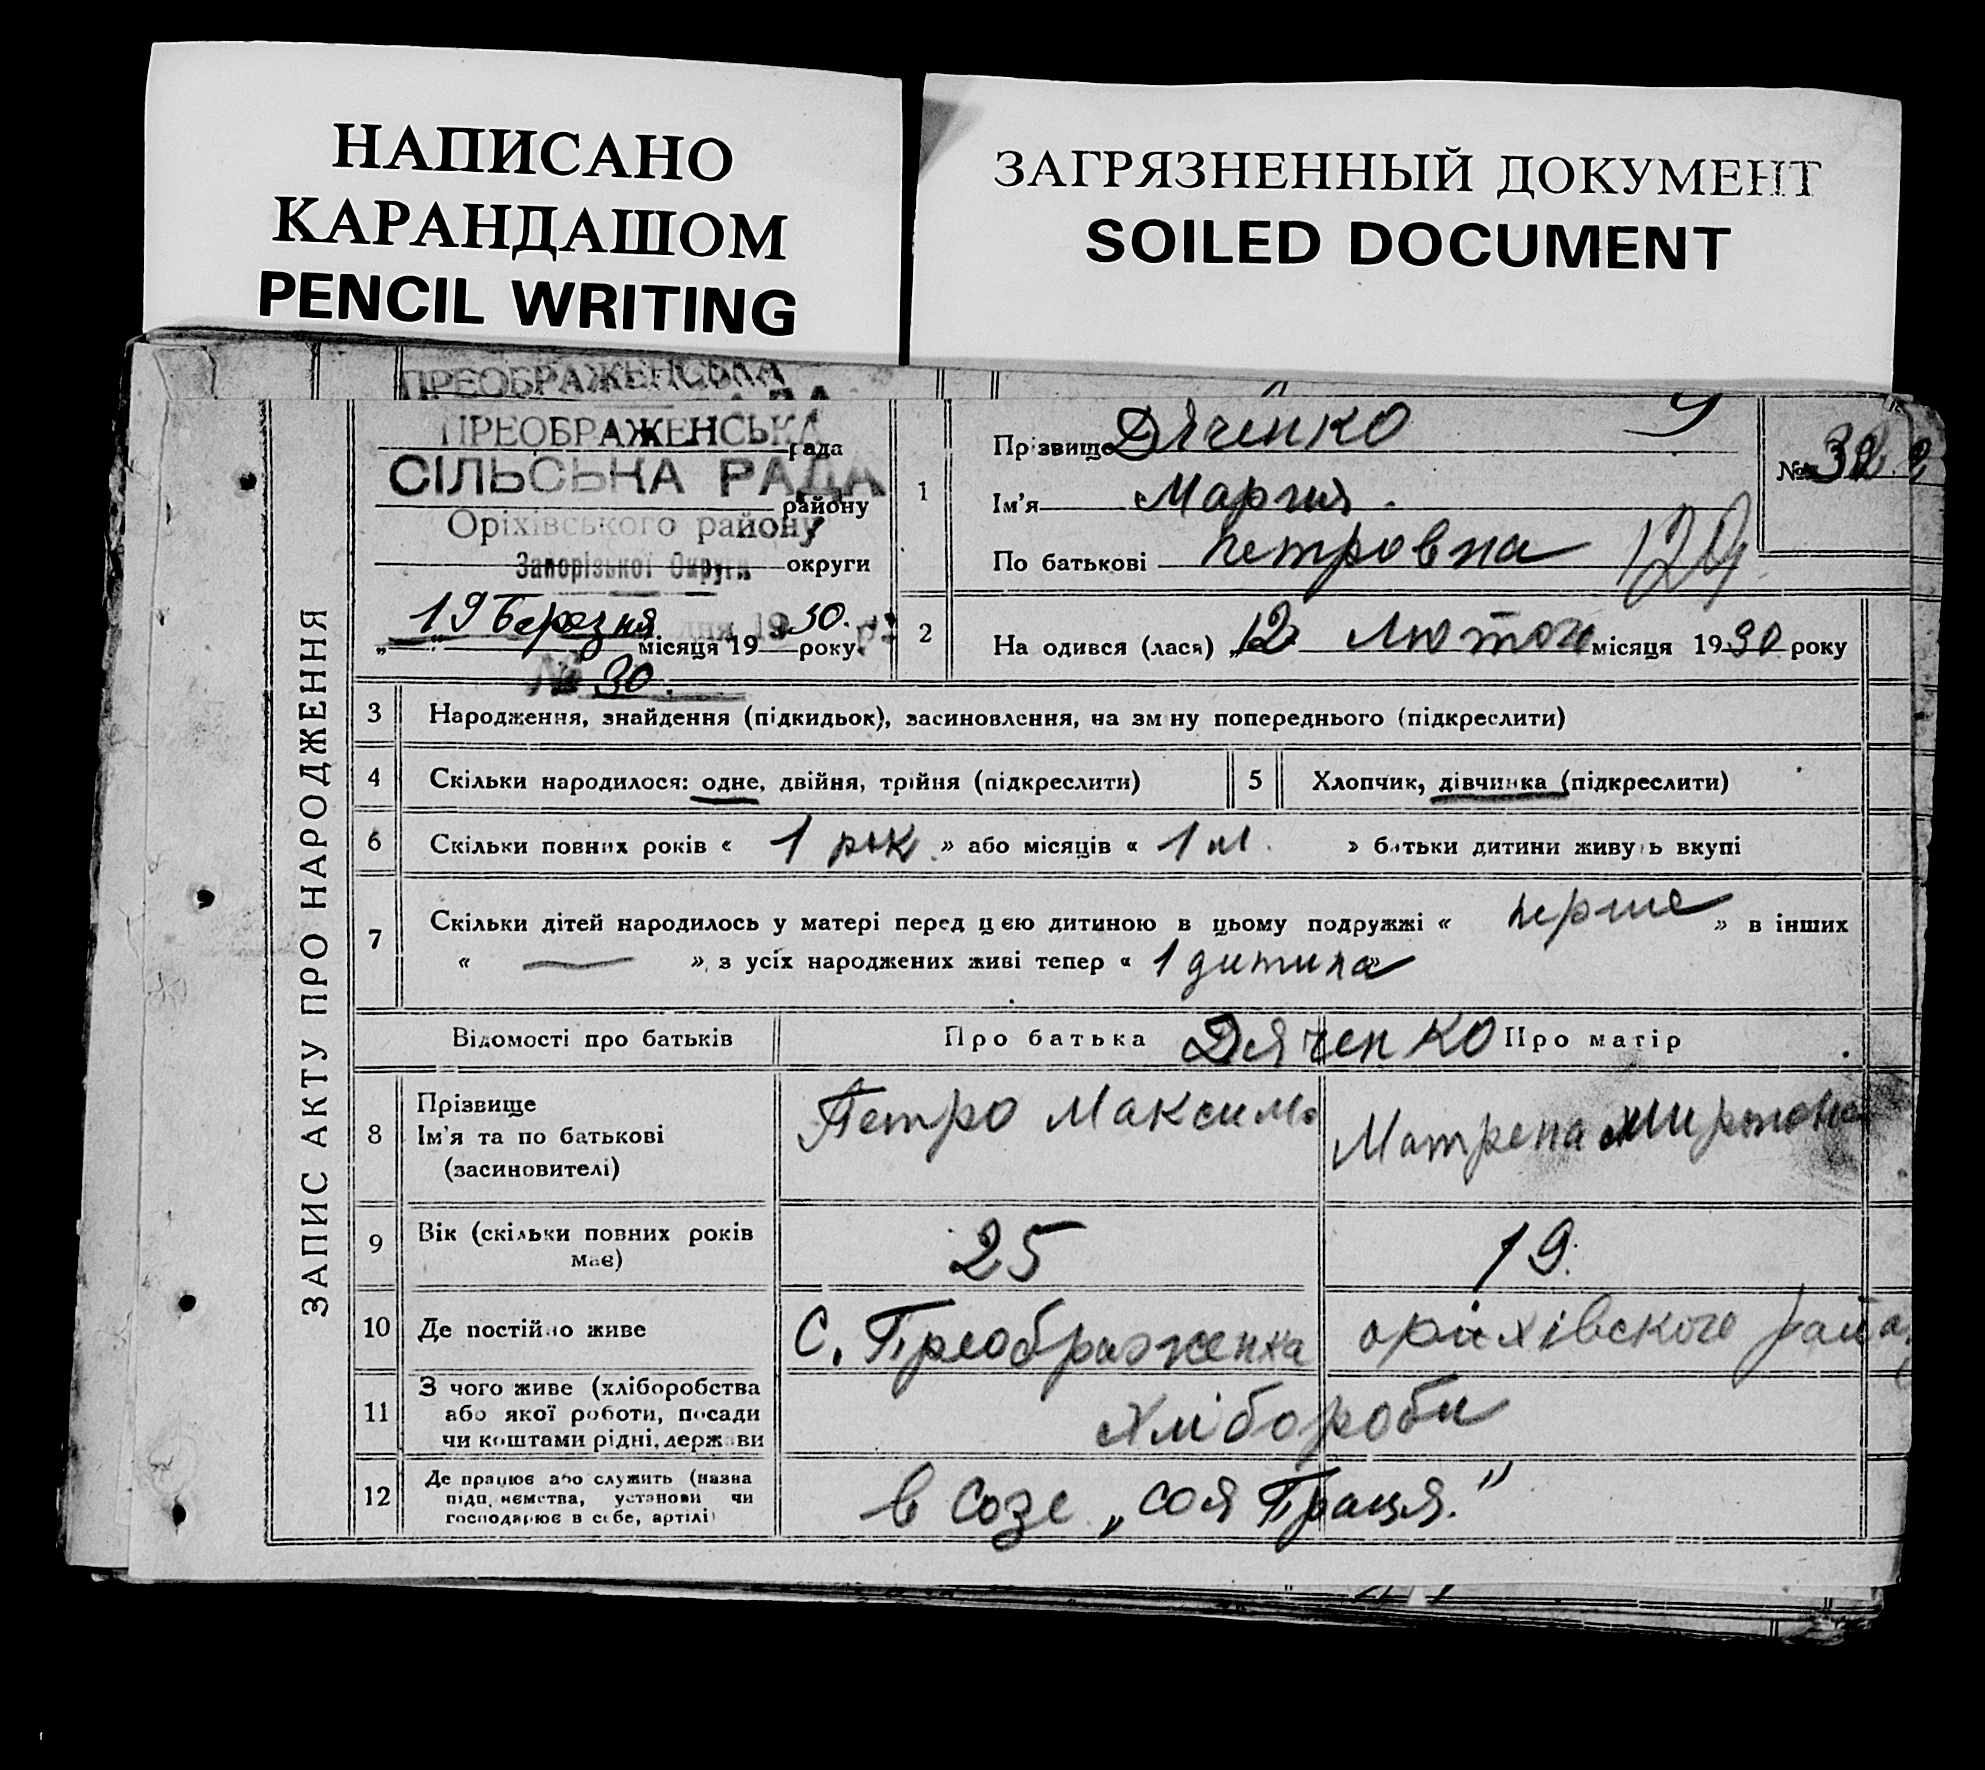 НАПИСАНО
КАРАНДАШОМ
PENCIL WRITING
ЗАГРЯЗНЕННЫЙ ДОКУМЕНТ
SOILED DOCUMENT
ПРЕОБРАЖЕНСЬКА
ПРЕОБРАЖЕНСЬКА рада
СІЛЬСЬКА РАДА
району
Оріхівського району
Запорізької Округи округи
„19 Березня місяця 1930 року
№ 30.
ЗАПИС АКТУ ПРО НАРОДЖЕННЯ
1
Прізвище Дяченко
Ім'я Мария.
По батькові Петровна
№ 32
124
2 На одився (лася) „12 Лютого місяця 1930 року
3 Народження, знайдення (підкидьок), засиновлення, на зм ну попереднього (підкреслити)
4 Скільки народилося: одне, двійня, трійня (підкреслити) 5 Хлопчик, дівчинка (підкреслити)
6 Скільки повних років « 1 рік » або місяців « 1 м. » батьки дитини живуть вкупі
7 Скільки дітей народилось у матері перед цією дитиною в цьому подружжі « перше » в інших
« — », з усіх народжених живі тепер « 1 дитина »
Відомості про батьків Про батька Дяченко Про матір
8 Прізвище
Ім'я та по батькові
(засиновителі)
Петро Максимо Матрена
9 Вік (скільки повних років має) 25 19.
10 Де постійно живе С. Преображенка оріхівского
11 З чого живе (хліборобства
або якої роботи, посади
чи коштами рідні, держави
Хлібороби
12 Де працює або служить (назва
підп, иємства, установи чи
господарює в себе, артілі)
в Созе „соя Праця."